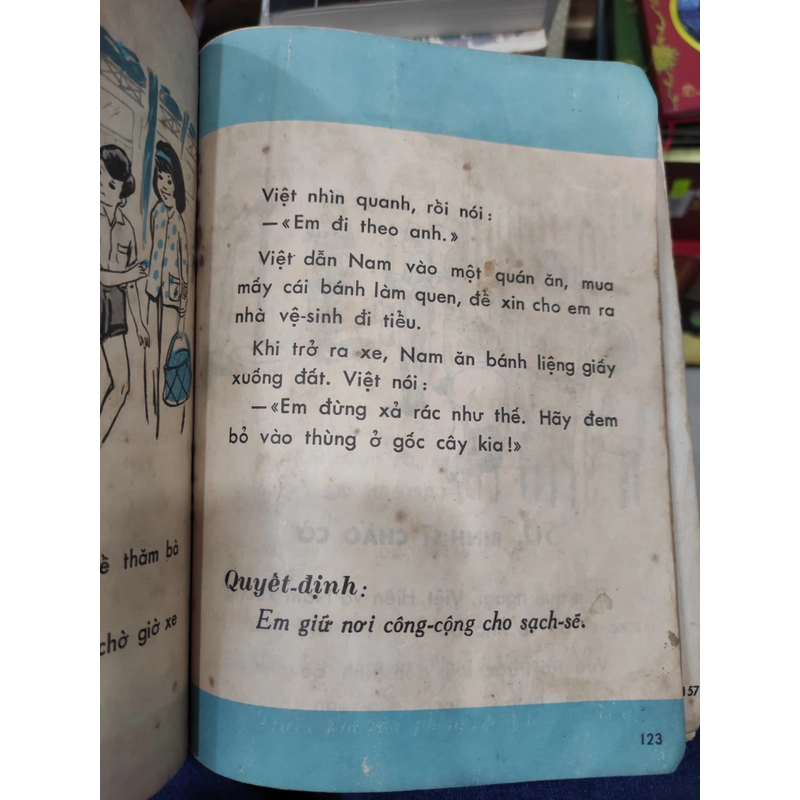 ề thăm bà
chờ giờ xe
Việt nhìn quanh, rồi nói :
—«Em đi theo anh.»
Việt dẫn Nam vào một quán ăn, mua
mấy cái bánh làm quen, để xin cho em ra
nhà vệ-sinh đi tiểu.
Khi trở ra xe, Nam ăn bánh liệng giấy
xuống đất. Việt nói :
—«Em đừng xả rác như thế. Hãy đem
bỏ vào thùng ở gốc cây kia!»
Quyết-định:
Em giữ nơi công-cộng cho sạch-sẽ.
123
157